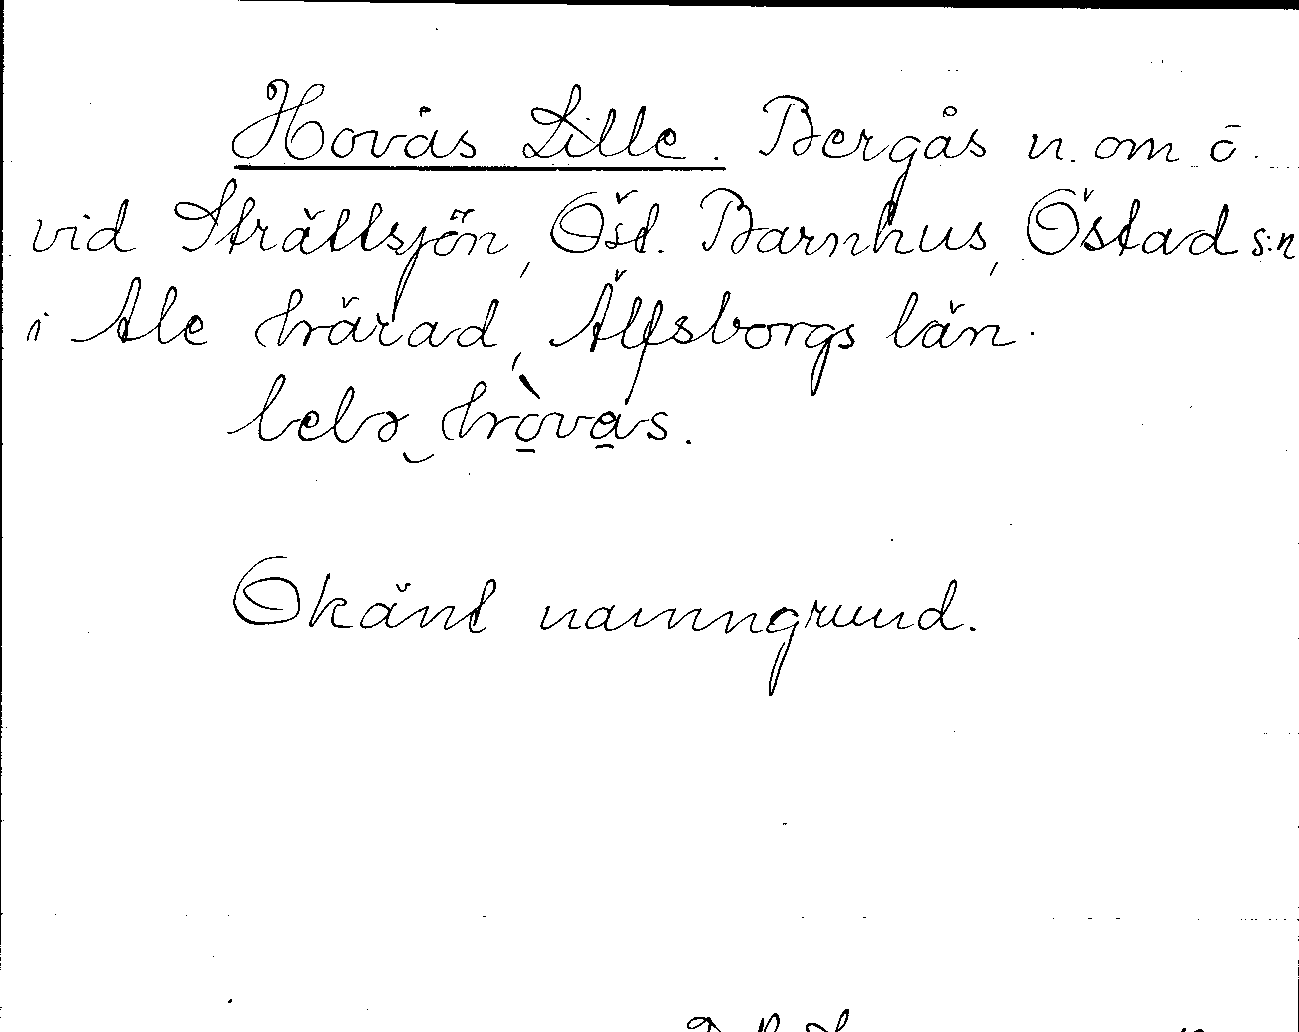 Hovås Lille. Bergås n. om ö.
vid Strällsjön, Öst. Barnhus, Östad s:n
i Ale härad, Älfsborgs län.
hòvås.
Okänt namngrund.